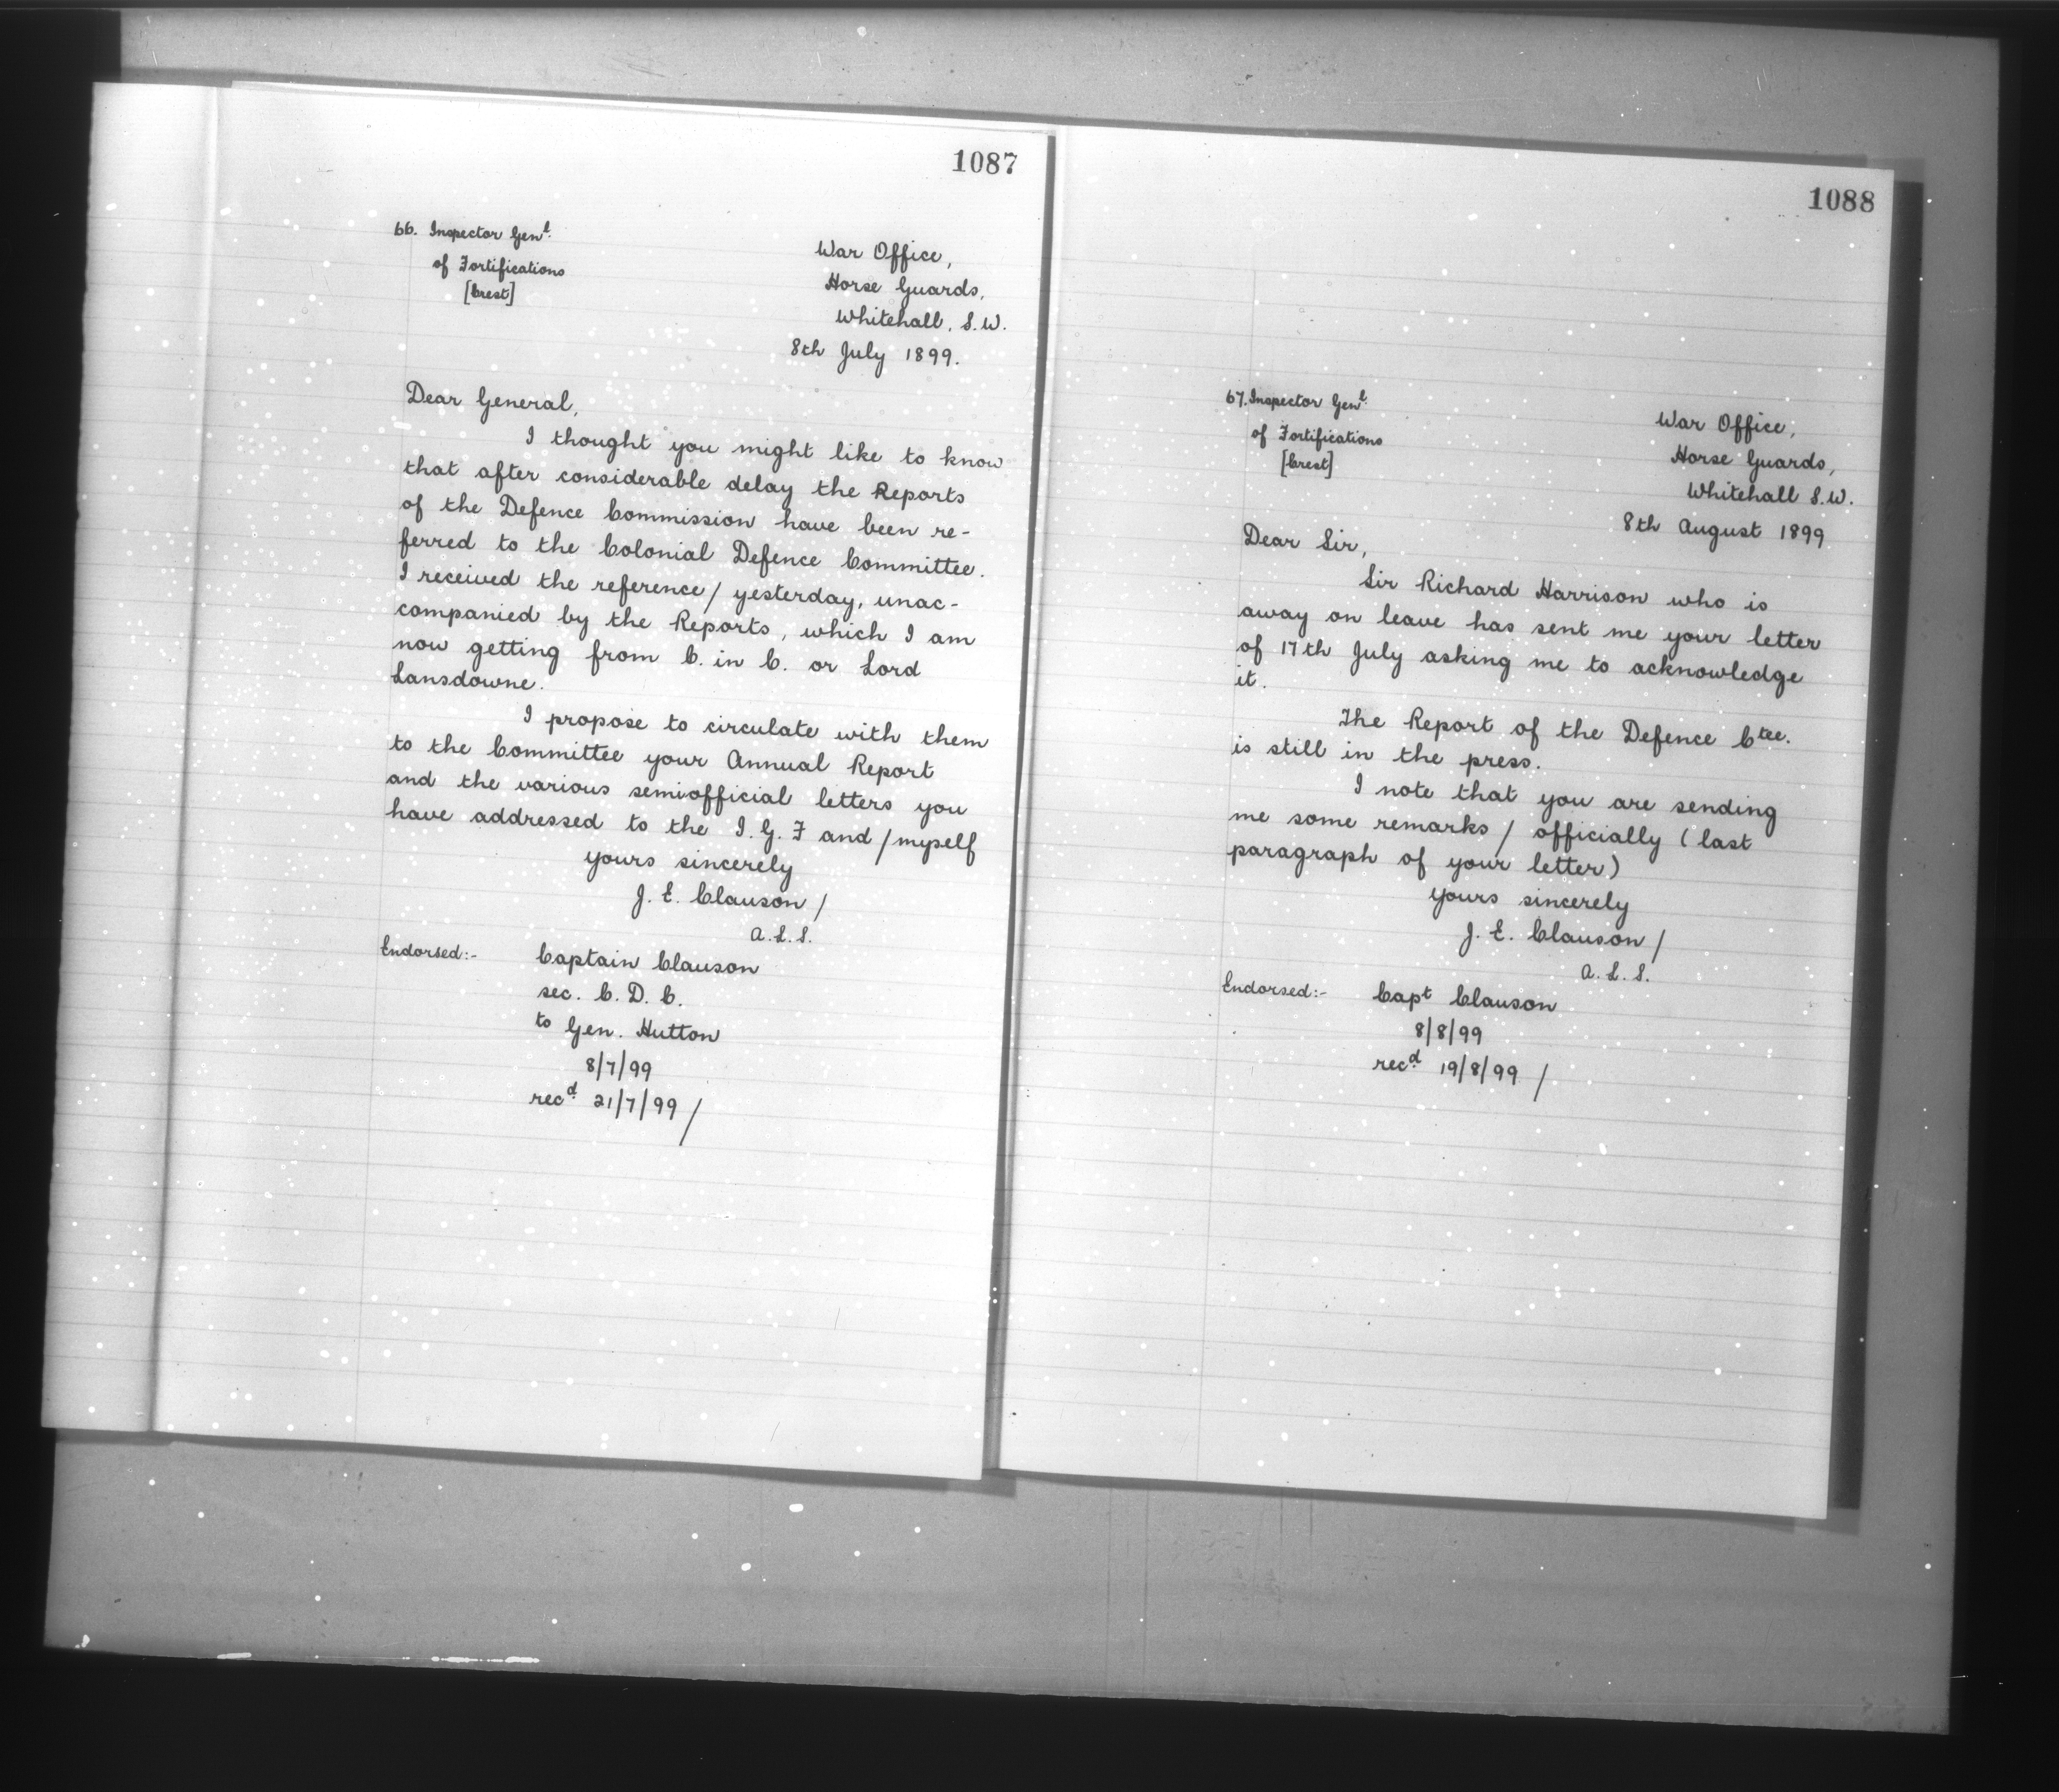 1087
66. Inspector Genl.
of Fortifications
[Crest]
War Office,
Horse Guards,
Whitehall, S.W.
8th July 1899.
Dear General,
I thought you might like to know
that after considerable delay the Reports
of the Defence Commission have been re-
ferred to the Colonial Defence Committee.
I received the reference/ yesterday, unac-
companied by the Reports, which I am
now getting from C. in C. or Lord
Lansdowne.
I propose to circulate with them
to the Committee your Annual Report
and the various semiofficial letters you
have addressed to the I.G.F and /myself
yours sincerely
J. E. Clauson /
A.L.S.
Endorsed:- Captain Clauson
sec. C. D. C.
to Gen. Hutton
8/7/99
recd. 21/7/99/
1088
67. Inspector Genl.
of Fortifications
[Crest]
War Office,
Horse Guards,
Whitehall S.W.
8th August 1899
Dear Sir,
Sir Richard Harrison who is
away on leave has sent me your letter
of 17th July asking me to acknowledge
it.
The Report of the Defence Ctee.
is still in the press.
I note that you are sending
me some remarks / officially (last
paragraph of your letter)
yours sincerely
J. E. Clauson /
A.L.S.
Endorsed:- Capt Clauson
8/8/99
recd. 19/8/99 /